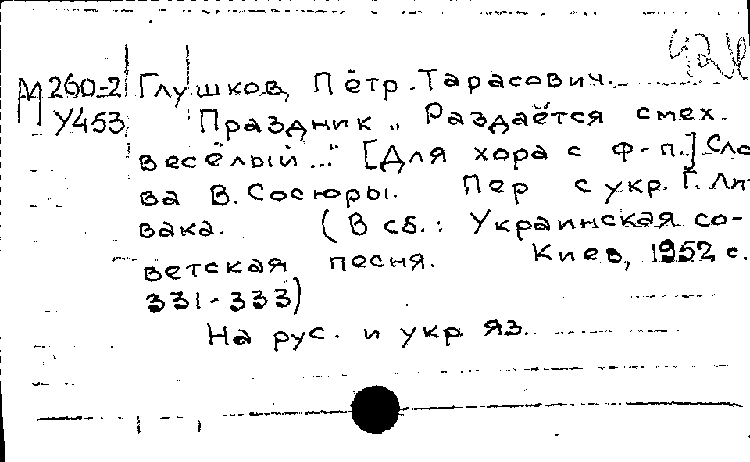 М260-2 Глушков, Пётр Тарасович.
У453 Праздник „Раздаётся смех
весёлый..." [Для хора с ф-п.] Сло
ва В. Сосюры. Пер с укр. Г. Лит
вака. (В сб.: Украинская со-
ветская песня. Киев, 1952 с.
331-333)
На рус. и укр яз.